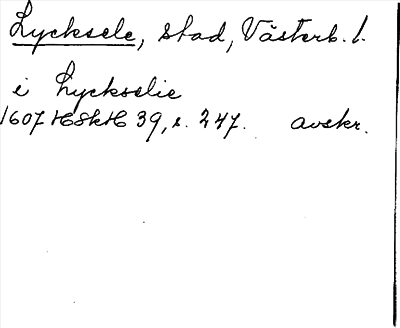 Lycksele, stad, Västerb. l.
i Lyckselie
1607 HSkH 39, s. 247. avskr.